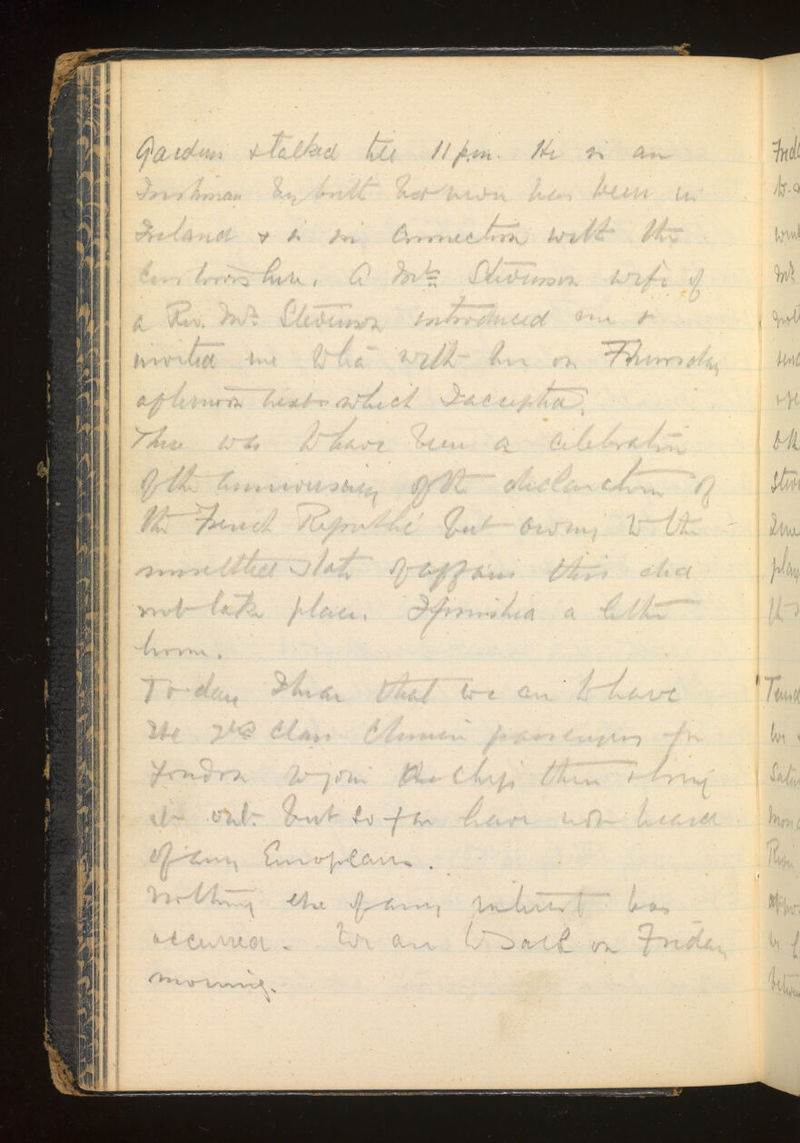 Gardens & talked till 11 p.m. He is an
Irishman by birth but never has been in
Ireland & is in connection with the
Customs here. A Mrs Stevenson wife of
a Rev. Mr Stevenson introduced me &
invited me to tea with her on Thursday
afternoon next which I accepted.
There was to have been a celebration
of the anniversary of the declaration of
the French Republic but owing to the
unsettled state of affairs this did
not take place. I finished a letter
home.
To-day I hear that we are to have
class Chinese passengers for
London to join ship there & bring
it out. but so far have not heard
of any Europeans.
Nothing else of any interest has
occurred. We are to sail on Friday
morning.